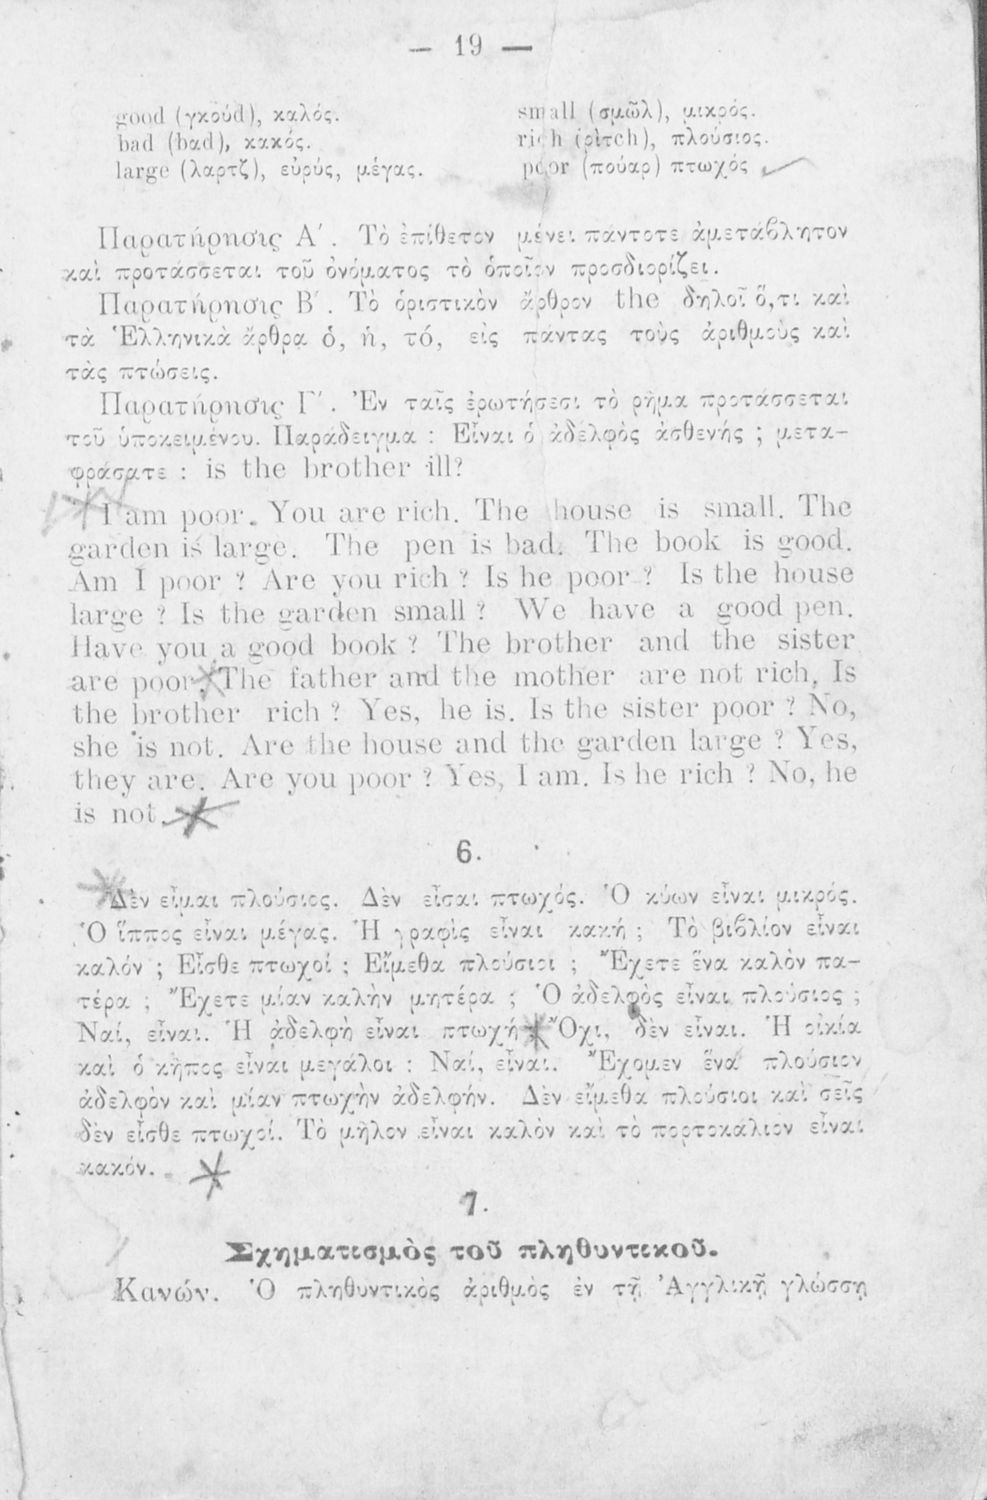 — 19 —
good (γκούd), καλός.
bad (bad), κακός.
large (λαρτζ), εὐρύς, μέγας.
small (σμῶλ), μικρός.
rich (ρὶτch), πλούσιος.
poor (πούαρ) πτωχός
Παρατήρησις Α΄. Τὸ ἐπίθετον μένει πάντοτε ἀμετάβλητον
καὶ προτάσσεται τοῦ ὀνόματος τὸ ὁποῖον προσδιορίζει.
Παρατήρησις Β΄. Τὸ ὁριστικὸν ἄρθρον the δηλοῖ ὅ,τι καὶ
τὰ Ἑλληνικὰ ἄρθρα ὁ, ἡ, τό, εἰς πάντας τοὺς ἀριθμοὺς καὶ
τὰς πτώσεις.
Παρατήρησις Γ΄. Ἐν ταῖς ἐρωτήσεσι τὸ ρῆμα προτάσσεται
τοῦ ὑποκειμένου. Παράδειγμα : Εἶναι ὁ ἀδελφὸς ἀσθενής ; μετα-
φράσατε : is the brother ill?
I am poor. You are rich. The house is small. The
garden is large. The pen is bad. The book is good.
Am I poor ? Are you rich ? Is he poor ? Is the house
large ? Is the garden small ? We have a good pen.
Have you a good book ? The brother and the sister
are poor. The father and the mother are not rich, Is
the brother rich ? Yes, he is. Is the sister poor ? No,
she is not. Are the house and the garden large ? Yes,
they are. Are you poor ? Yes, I am. Is he rich ? No, he
is not.
6.
Δὲν εἶμαι πλούσιος. Δὲν εἶσαι πτωχός. Ὁ κύων εἶναι μικρός.
Ὁ ἵππος εἶναι μέγας. Ἡ γραφὶς εἶναι κακή ; Τὸ βιβλίον εἶναι
καλόν ; Εἶσθε πτωχοί ; Εἴμεθα πλούσιοι ; Ἔχετε ἕνα καλὸν πα-
τέρα ; Ἔχετε μίαν καλὴν μητέρα ; Ὁ ἀδελφὸς εἶναι πλούσιος ;
Ναί, εἶναι. Ἡ ἀδελφὴ εἶναι πτωχή Ὄχι, δὲν εἶναι. Ἡ οἰκία
καὶ ὁ κῆπος εἶναι μεγάλοι : Ναί, εἶναι. Ἔχομεν ἕνα πλούσιον
ἀδελφὸν καὶ μίαν πτωχὴν ἀδελφήν. Δὲν εἴμεθα πλούσιοι καὶ σεῖς
δὲν εἶσθε πτωχοί. Τὸ μῆλον εἶναι καλὸν καὶ τὸ πορτοκάλιον εἶναι
κακόν.
7.
Σχηματισμὸς τοῦ πληθυντικοῦ.
Κανών. Ὁ πληθυντικὸς ἀριθμὸς ἐν τῇ Ἀγγλικῇ γλώσσῃ